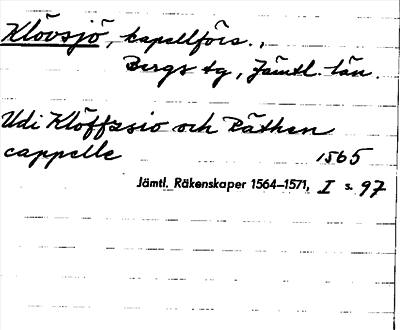 Klövsjö, kapellförs.,
Bergs tg, Jämtl. län.
Udi Klöffzsio och Räthen
cappelle 1565
Jämtl. Räkenskaper 1564–1571, I s. 97